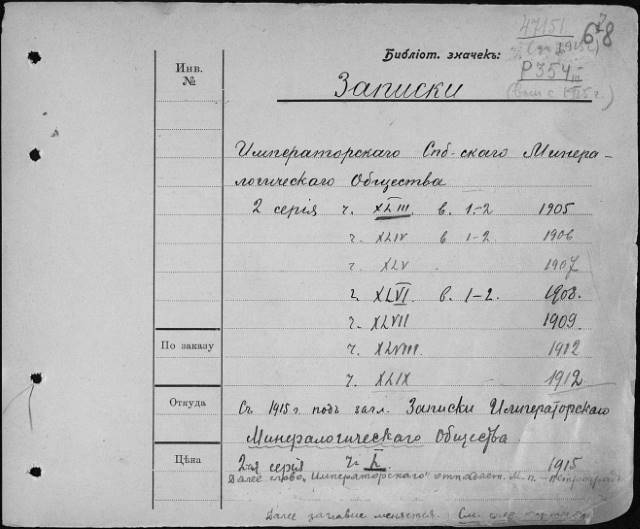 47151
678
(за 1915г)
Библіот. значекъ:
Р354
III
(вып с 1915 г.)
Инв. №
Записки
Императорскаго Спб-скаго Минера-
логическаго Общества
2 серія ч. XLIII. в. 1-2 1905
ч. XLIV в 1-2. 1906
ч. XLV 1907
ч. XLVI. в. 1-2. 1908.
ч. XLVII 1909
По заказу
ч. XLVIII. 1912
ч. XLIX 1912
Откуда
Съ 1915 г подъ загл. Записки Императорскаго
Минералогическаго Общества
Цѣна
2-я серія ч. L 1915
Далее слово "Императорскаго" отпадает. М. п. - Петроград
Далее заглавие меняется. См. след